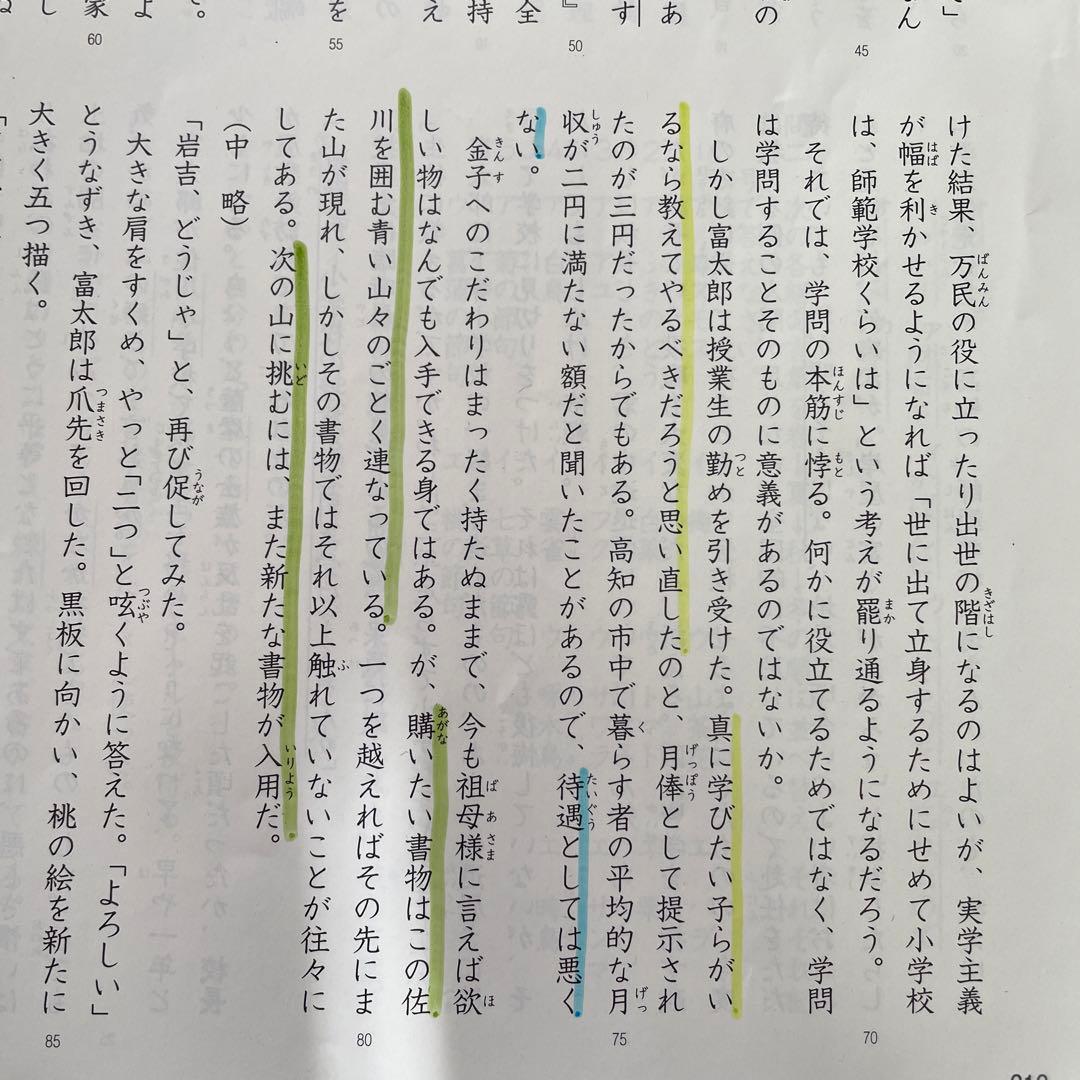 」
45
なん
の
あ
す
50
』
全
持
え
を
55
の
家
60
よ
。
けた結果、万民の役に立ったり出世の階になるのはよいが、実学主義
が幅を利かせるようになれば「世に出て立身するためにせめて小学校
は、師範学校くらいは」という考えが罷り通るようになるだろう。
それでは、学問の本筋に悖る。何かに役立てるためではなく、学問
70
は学問することそのものに意義があるのではないか。
しかし富太郎は授業生の勤めを引き受けた。真に学びたい子らがい
るなら教えてやるべきだろうと思い直したのと、月俸として提示され
たのが三円だったからでもある。高知の市中で暮らす者の平均的な月
75
収が二円に満たない額だと聞いたことがあるので、待遇としては悪く
ない。
金子へのこだわりはまったく持たぬままで、今も祖母様に言えば欲
しい物はなんでも入手できる身ではある。が、購いたい書物はこの佐
川を囲む青い山々のごとく連なっている。一つを越えればその先にま
80
た山が現れ、しかしその書物ではそれ以上触れていないことが往々に
してある。次の山に挑むには、また新たな書物が入用だ。
(中 略)
「岩吉、どうじゃ」と、再び促してみた。
大きな肩をすくめ、やっと「二つ」と呟くように答えた。「よろしい」
とうなずき、富太郎は爪先を回した。黒板に向かい、桃の絵を新たに
85
大きく五つ描く。